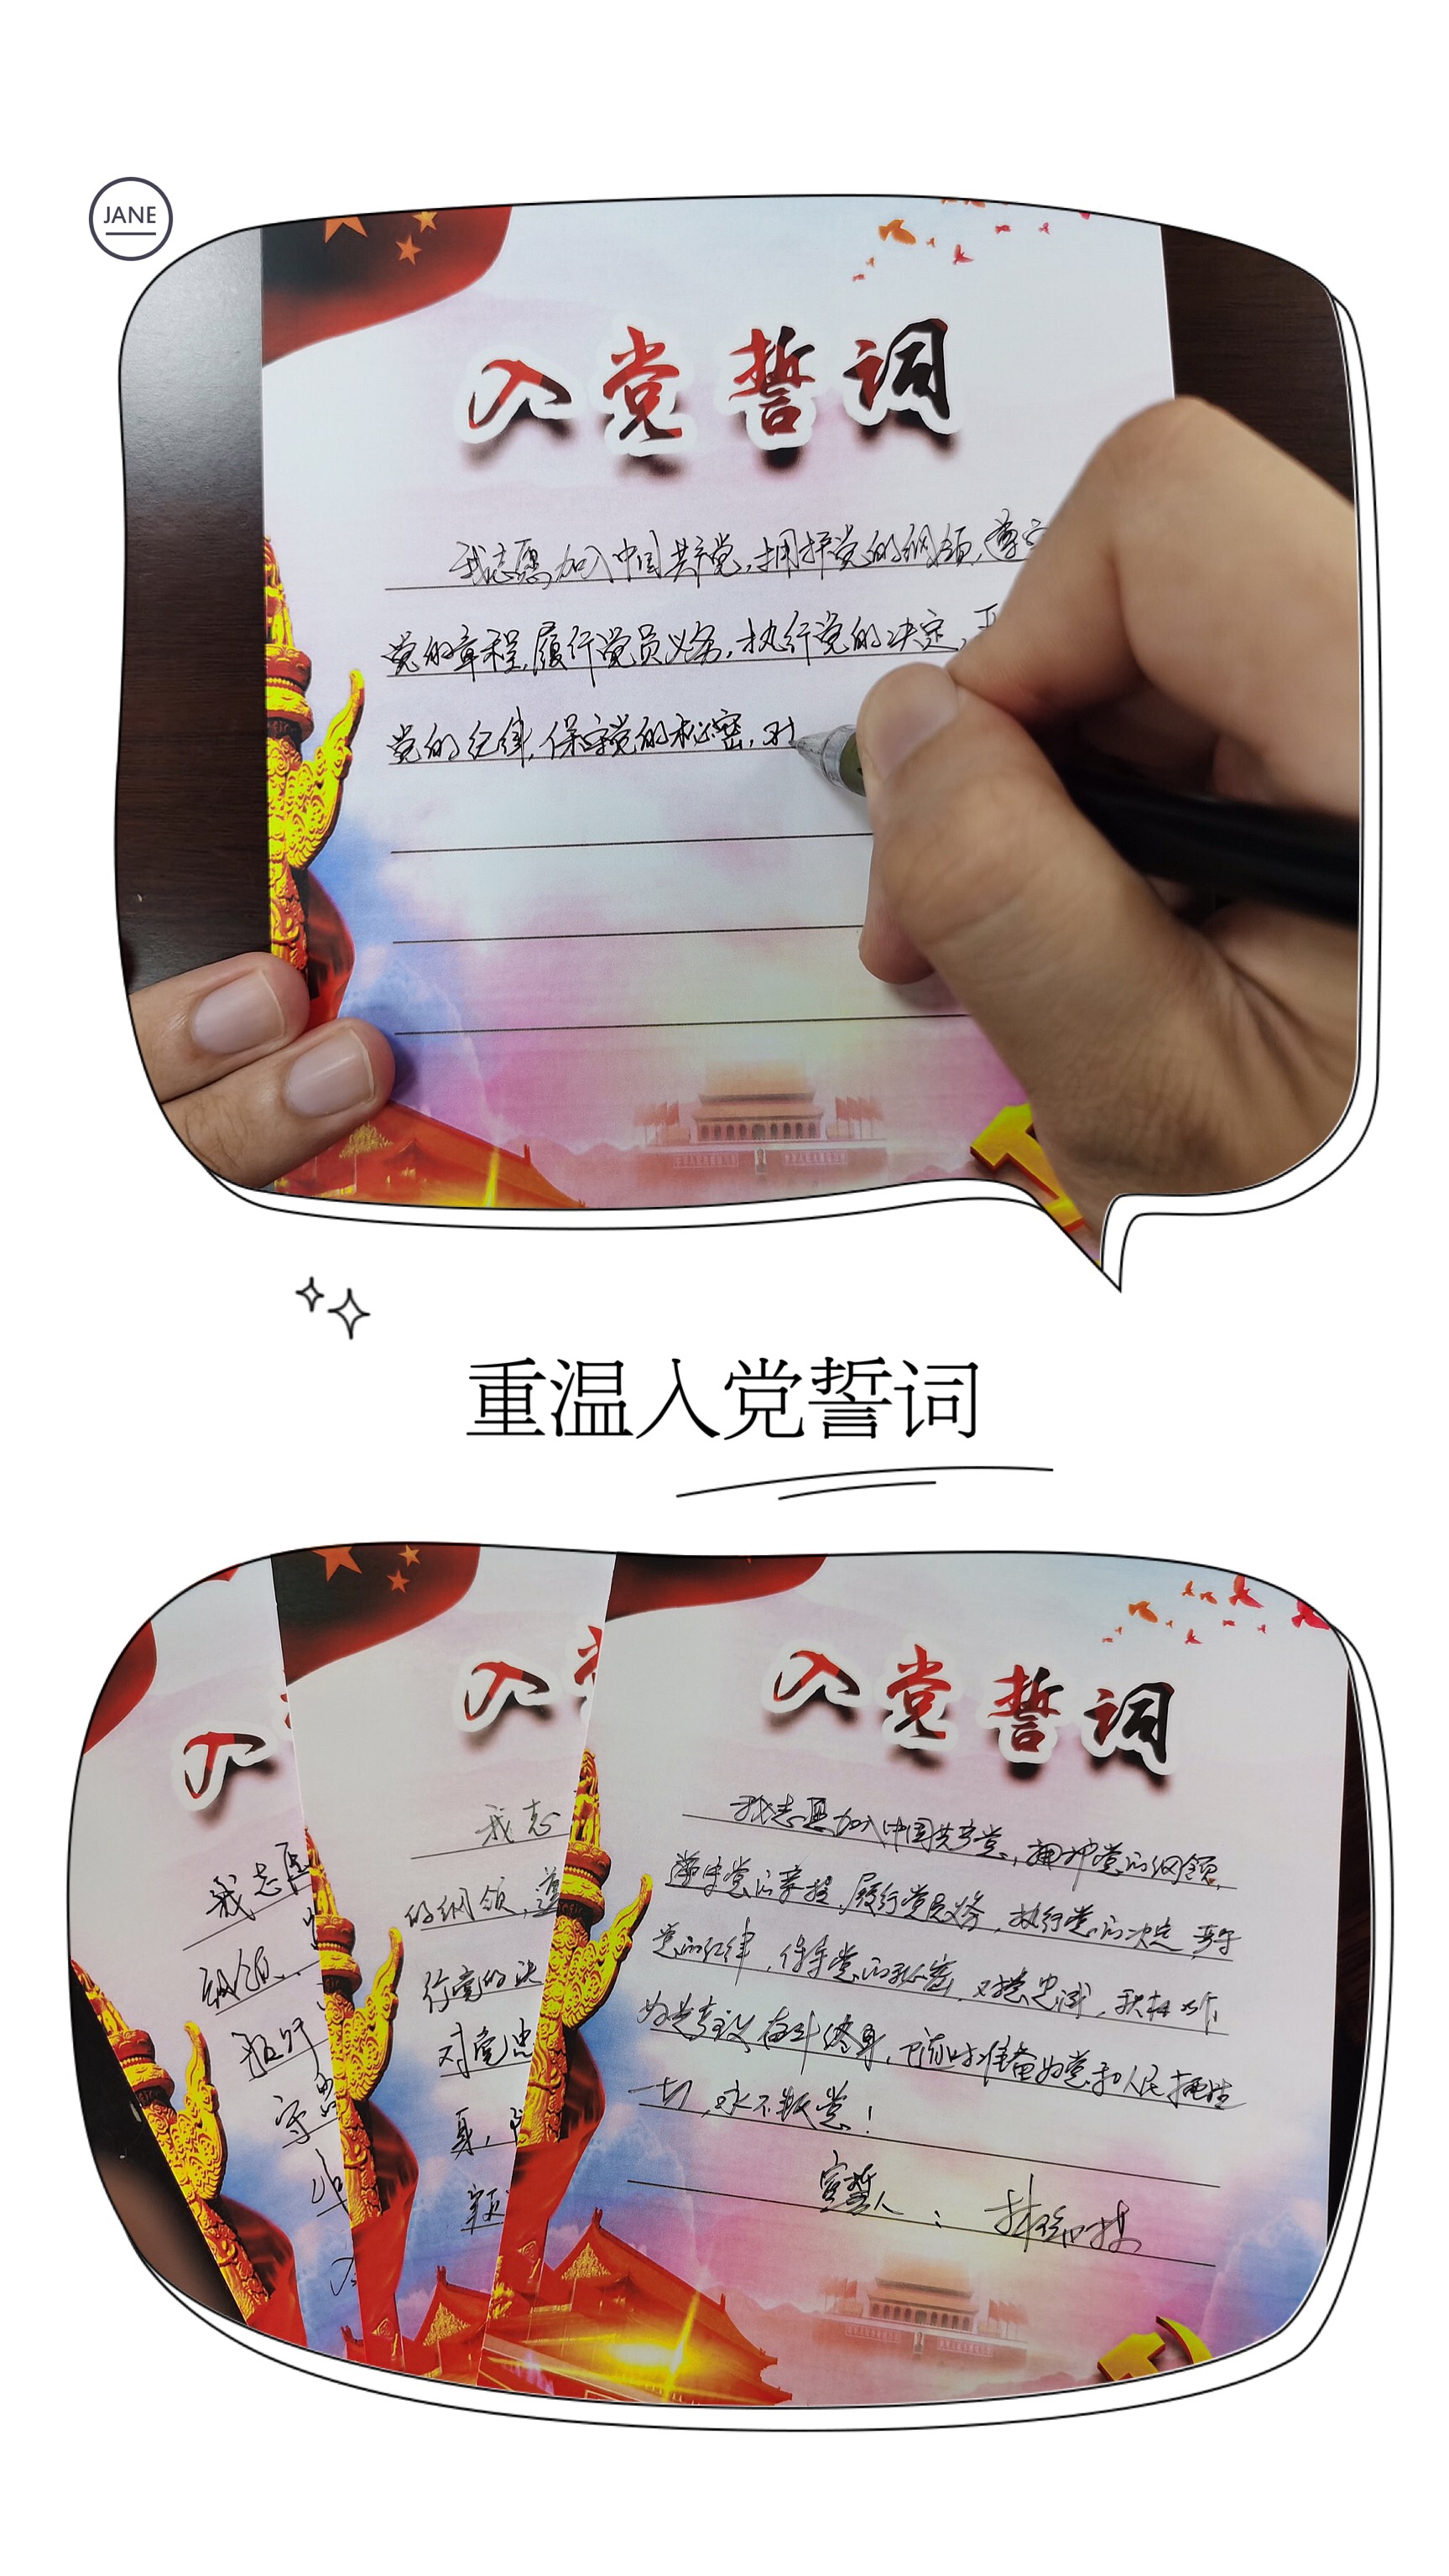 JANE
入党誓词
我志愿加入中国共产党,拥护党的纲领,遵守
党的章程,履行党员义务,执行党的决定,
党的纪律,保守党的秘密,对
重温入党誓词
入
我志愿
纲领
守
入
我志
的纲领,遵
行党的决
对党忠
身,
入党誓词
我志愿加入中国共产党,拥护党的纲领,
遵守党的章程,履行党员义务,执行党的决定,严守
党的纪律,保守党的秘密,对党忠诚,积极工作,
为共产主义奋斗终身,随时准备为党和人民牺牲
一切,永不叛党!
宣誓人: